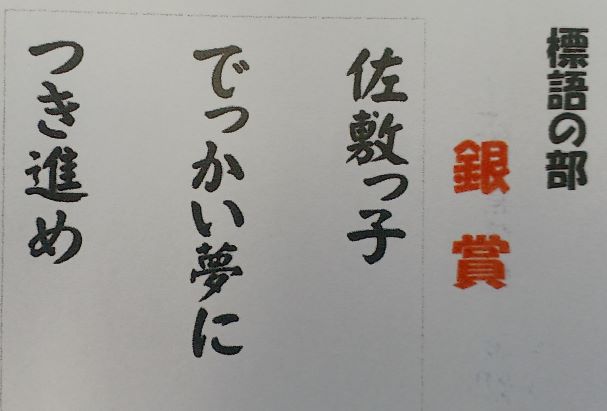 標語の部
銀賞
佐敷っ子
でっかい夢に
つき進め